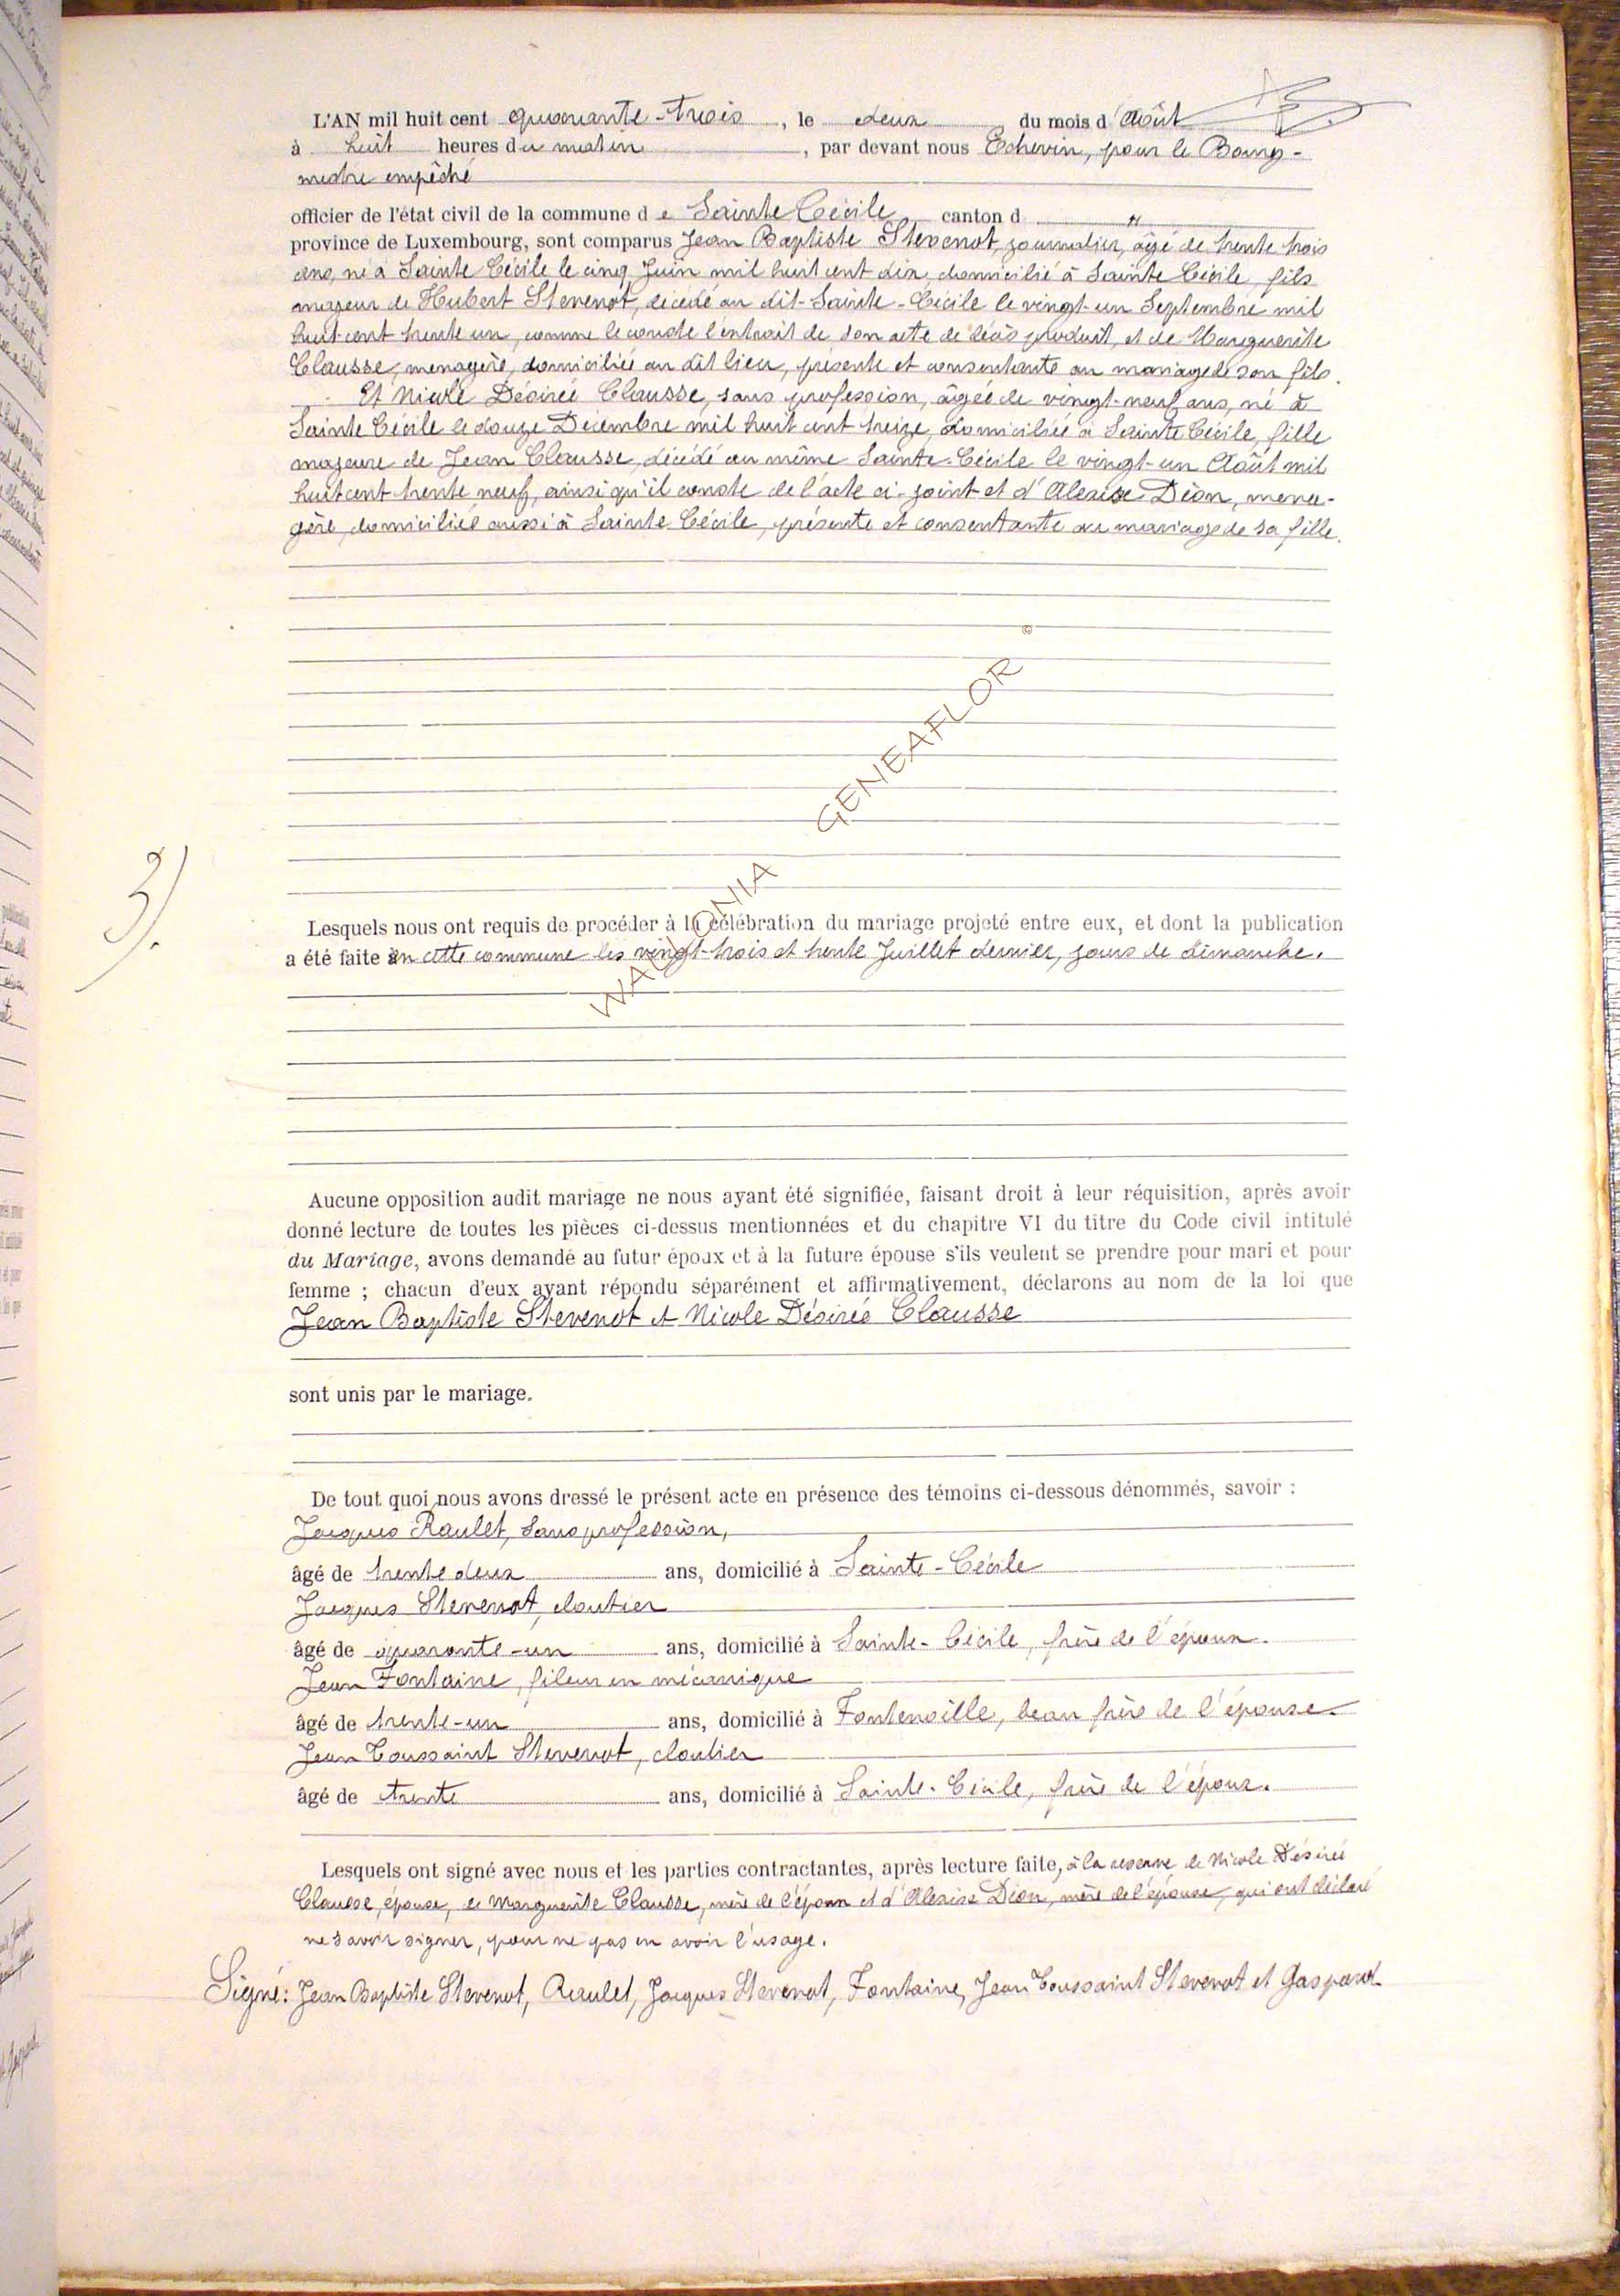 L'AN mil huit cent quarante-trois, le deux du mois d'Août
à huit heures du matin, par devant nous Echevin, pour le Bourg-
mestre empêché
officier de l'état civil de la commune de Sainte Cécile canton d "
province de Luxembourg, sont comparus Jean Baptiste Stevenot, journalier, âgé de trente trois
ans, né à Sainte Cécile le cinq Juin mil huit cent dix, domicilié à Sainte Cécile, fils
majeur de Hubert Stevenot, décédé au dit-Sainte-Cécile le vingt-un Septembre mil
huit cent trente un, comme le conste l'extrait de son acte de décès produit, et de Marguerite
Clausse, menagère, domiciliée au dit lieu, présente et consentante au mariage de son fils.
Et Nicole Désirée Clausse, sans profession, âgée de vingt-neuf ans, né à
Sainte Cécile le douze Décembre mil huit cent treize, domiciliée à Sainte Cécile, fille
majeure de Jean Clausse, décédé au même Sainte-Cécile le vingt-un Août mil
huit cent trente neuf, ainsi qu'il conste de l'acte ci-joint et d'Alexise Dion, mena-
gère, domiciliée aussi à Sainte Cécile, présente et consentante au mariage de sa fille.
3).
WALLONIA GENEAFLOR ©
Lesquels nous ont requis de procéder à la célébration du mariage projeté entre eux, et dont la publication
a été faite en cette commune les vingt-trois et trente Juillet dernier, jours de dimanche.
Aucune opposition audit mariage ne nous ayant été signifiée, faisant droit à leur réquisition, après avoir
donné lecture de toutes les pièces ci-dessus mentionnées et du chapitre VI du titre du Code civil intitulé
du Mariage, avons demandé au futur époux et à la future épouse s'ils veulent se prendre pour mari et pour
femme ; chacun d'eux ayant répondu séparément et affirmativement, déclarons au nom de la loi que
Jean Baptiste Stevenot et Nicole Désirée Clausse
sont unis par le mariage.
De tout quoi nous avons dressé le présent acte en présence des témoins ci-dessous dénommés, savoir :
Jacques Raulet, sans profession,
âgé de trente deux ans, domicilié à Sainte-Cécile
Jacques Stevenot, cloutier
âgé de quarante-un ans, domicilié à Sainte-Cécile, frère de l'époux.
Jean Fontaine, fileur en mécanique
âgé de trente-un ans, domicilié à Fontenoille, beau frère de l'épouse.
Jean Toussaint Stevenot, cloutier
âgé de trente ans, domicilié à Sainte-Cécile, frère de l'époux.
Lesquels ont signé avec nous et les parties contractantes, après lecture faite, à la reserve de Nicole Désirée
Clausse, épouse, de Marguerite Clausse, mère de l'époux et d'Alexise Dion, mère de l'épouse, qui ont déclaré
ne savoir signer, pour ne pas en avoir l'usage.
Signé: Jean Baptiste Stevenot, Raulet, Jacques Stevenot, Fontaine, Jean Toussaint Stevenot et Gaspard